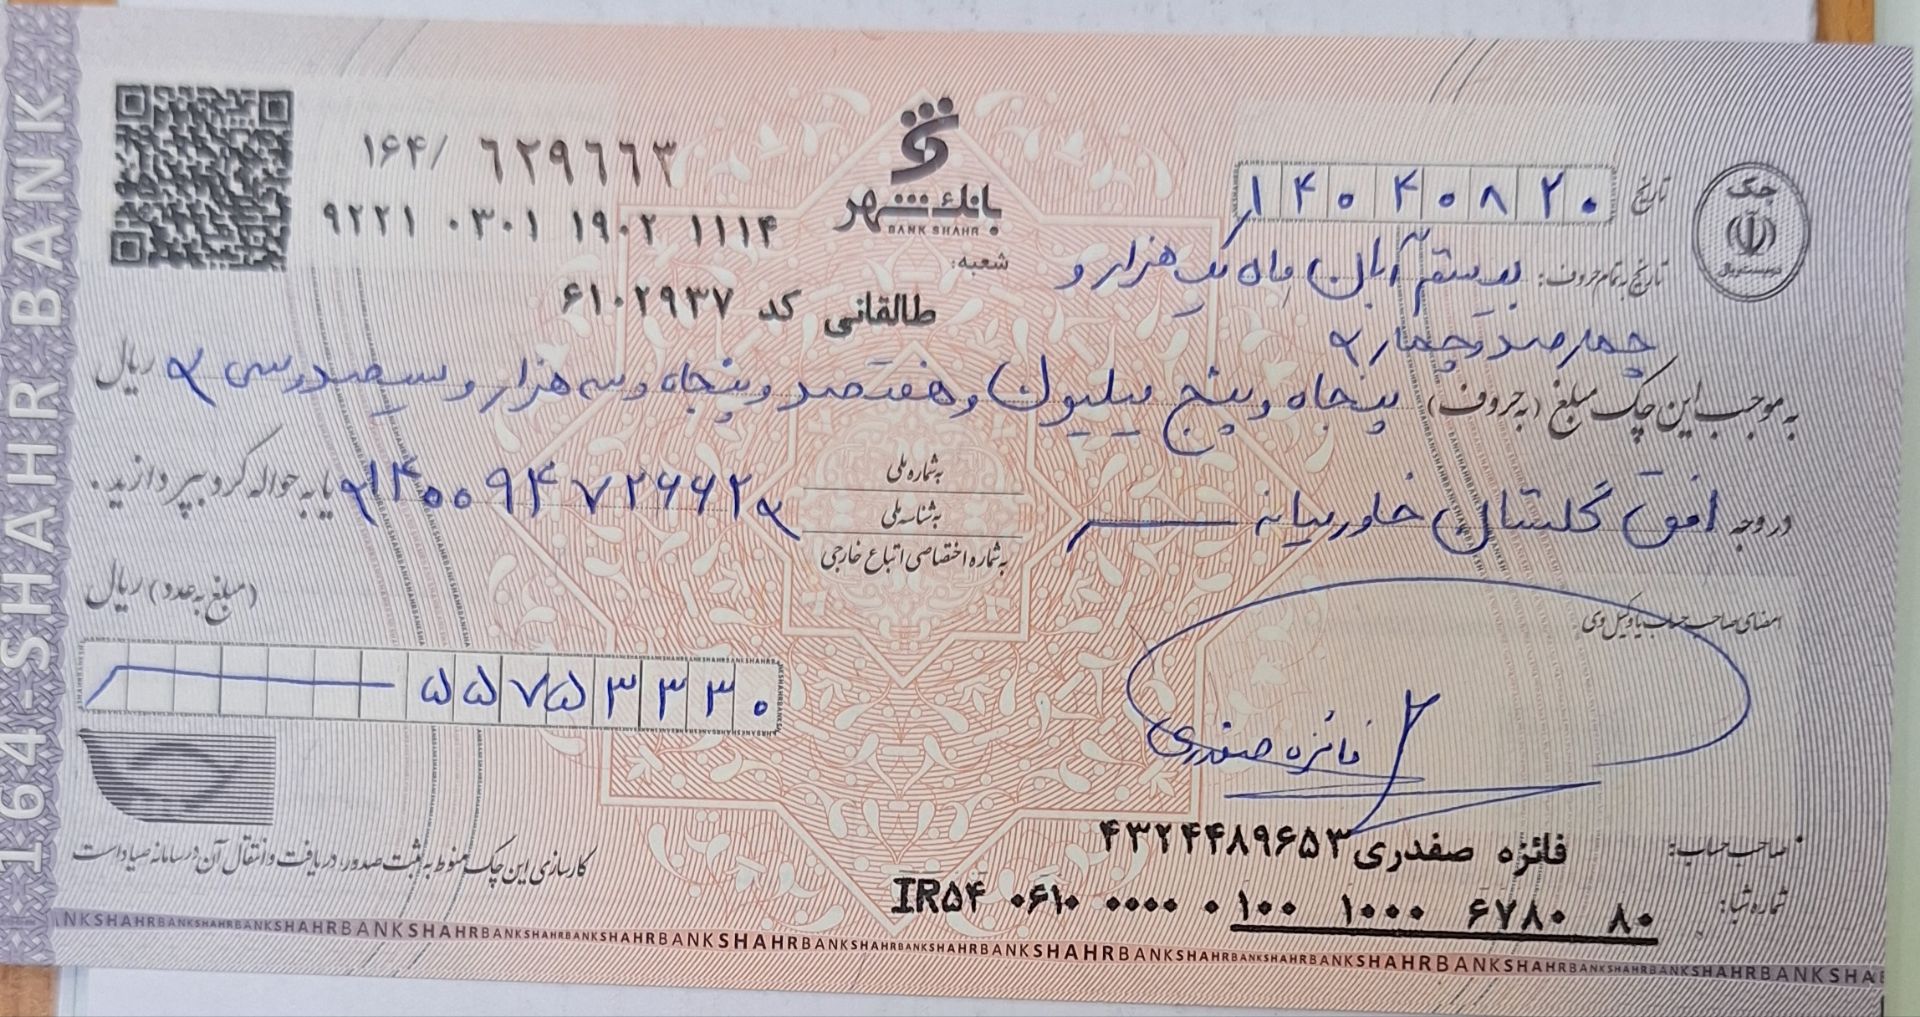 164-SHAHR BANK
۱۶۴/ ۶۲۹۶۶۳
۹۲۲۱ ۰۳۰۱ ۱۹۰۲ ۱۱۱۴
بانک شهر
BANK SHAHR
شعبه:
طالقانی کد ۶۱۰۲۹۳۷
چک
تاریخ ۱۴۰۴۰۸۲۰
تاریخ به تمام حروف: بیستم آبان ماه یک هزار و
چهارصد و چهار
به موجب این چک مبلغ (به حروف) پنجاه و پنج میلیون و هفتصد و پنجاه و سه هزار و سیصد و سی ریال
در وجه افق گلستان خاورمیانه به شماره ملی
به شناسه ملی
به شماره اختصاصی اتباع خارجی
۱۴۰۰۹۴۷۲۶۶۲ یا به حواله کرد بپردازید.
(مبلغ به عدد) ریال
۵۵۷۵۳۳۳۰
امضای صاحب حساب یا وکیل وی
فائزه صفدری
صاحب حساب: فائزه صفدری ۴۳۲۴۴۸۹۶۵۳
شماره شبا: IR۵۴ ۰۶۱۰ ۰۰۰۰ ۰۱۰۰ ۱۰۰۰ ۶۷۸۰ ۸۰
کارسازی این چک منوط به ثبت صدور، دریافت و انتقال آن در سامانه صیاد است